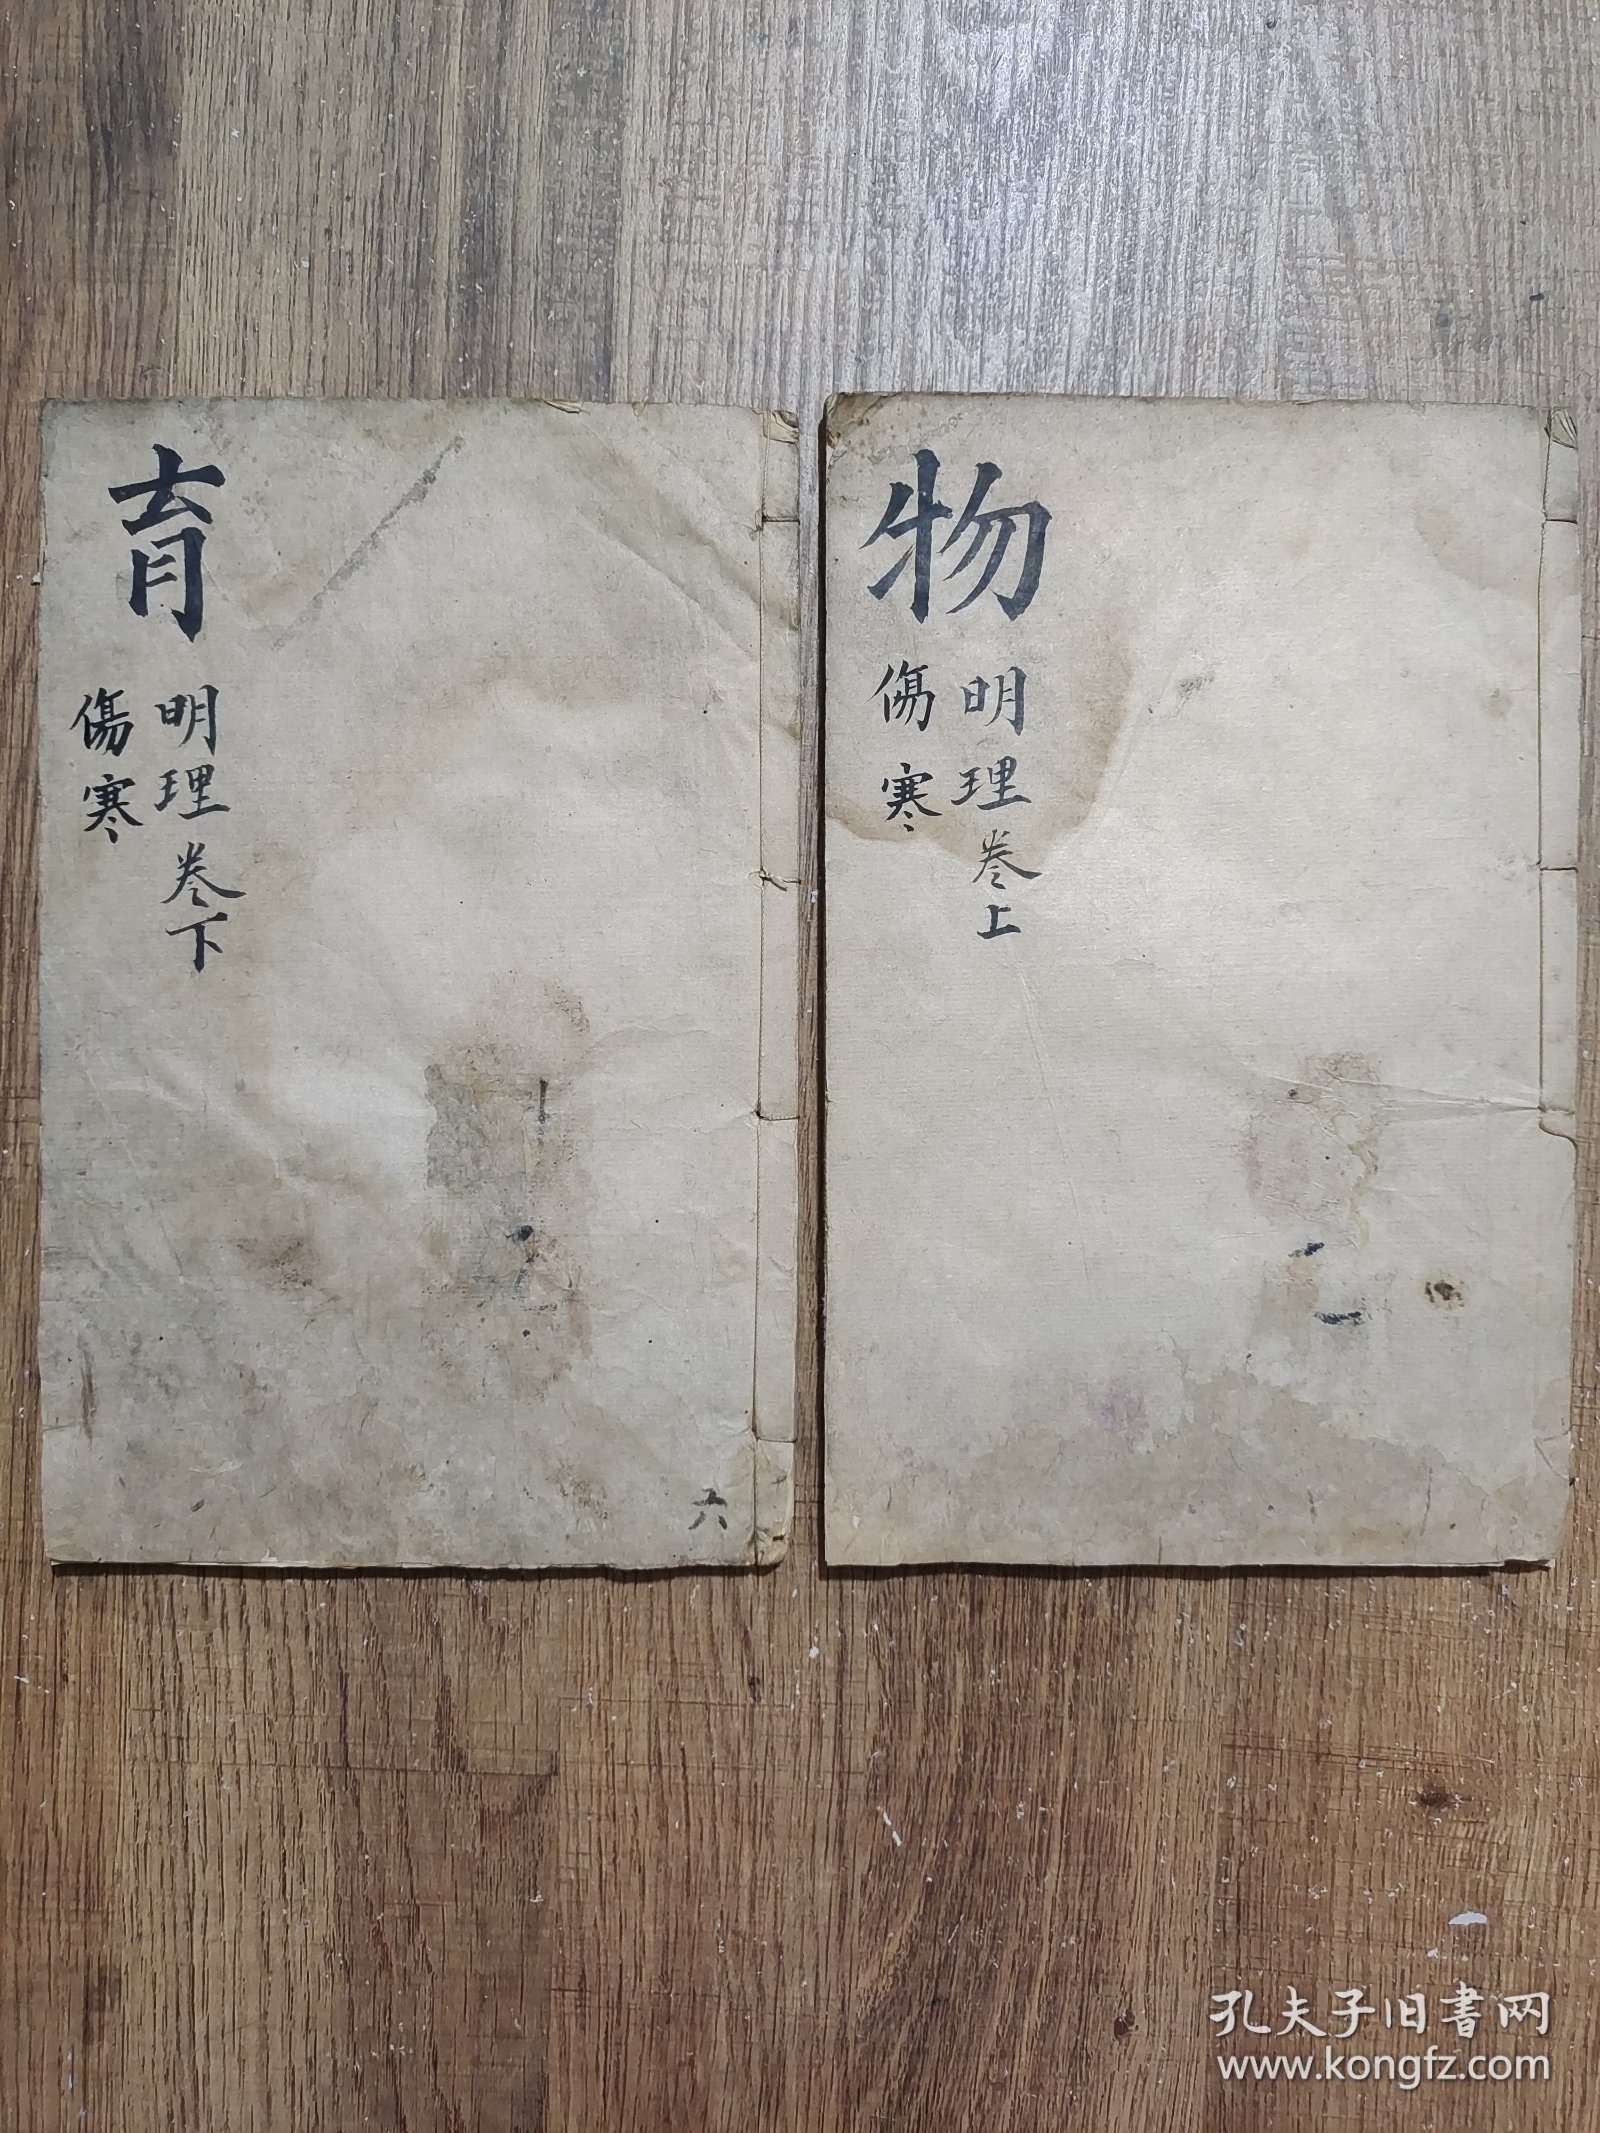 物
明理卷上
傷寒
育
明理卷下
傷寒
六
孔夫子旧書网
www.kongfz.com